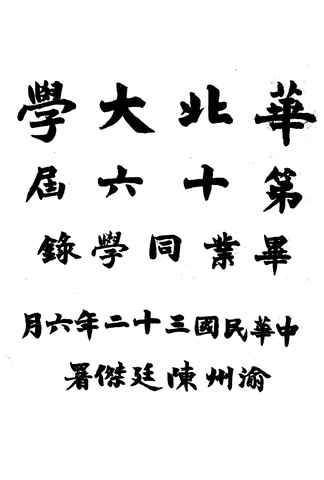 華北大學
第十六屆
畢業同學錄
中華民國三十二年六月
渝州陳廷傑署